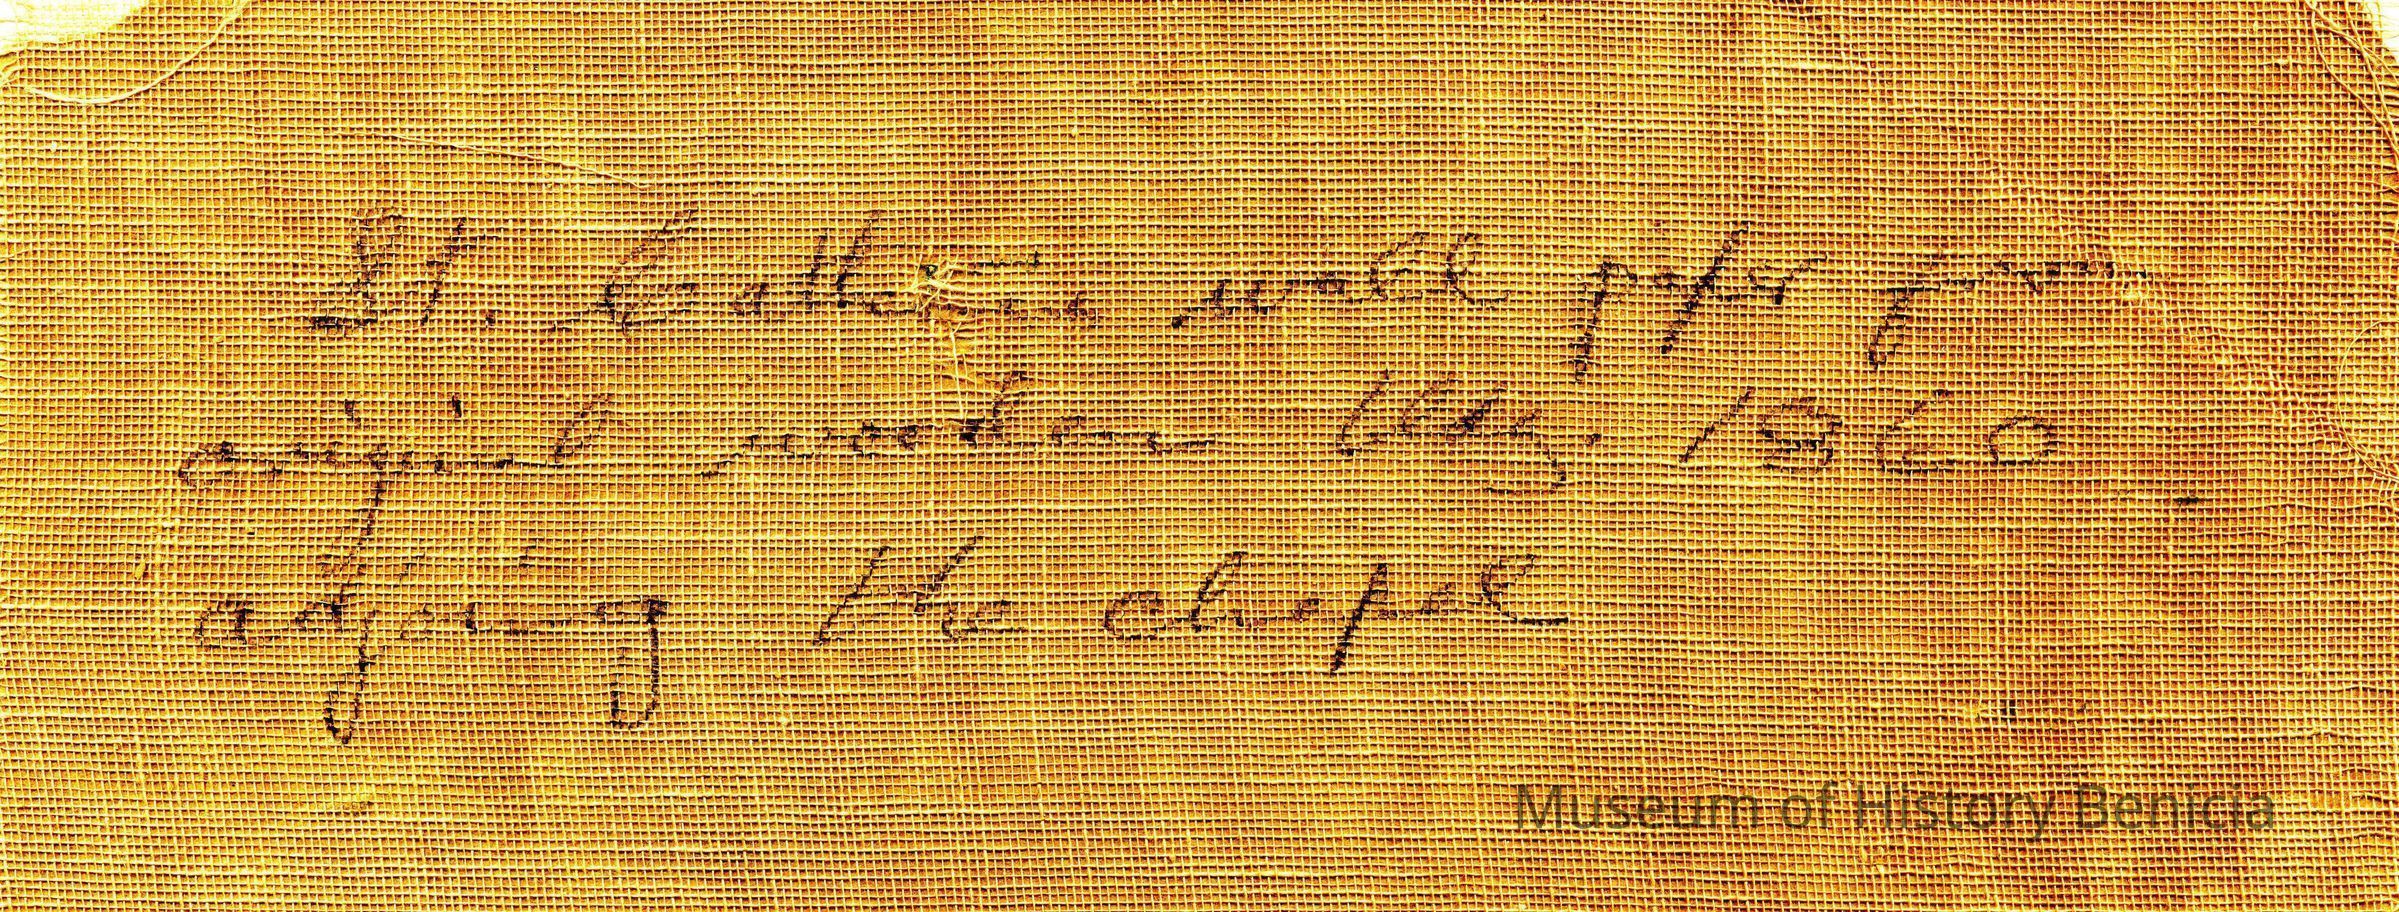 St. Catherine's wall paper from
original wooden bldg. 1960
adjoining the chapel
Museum of History Benicia